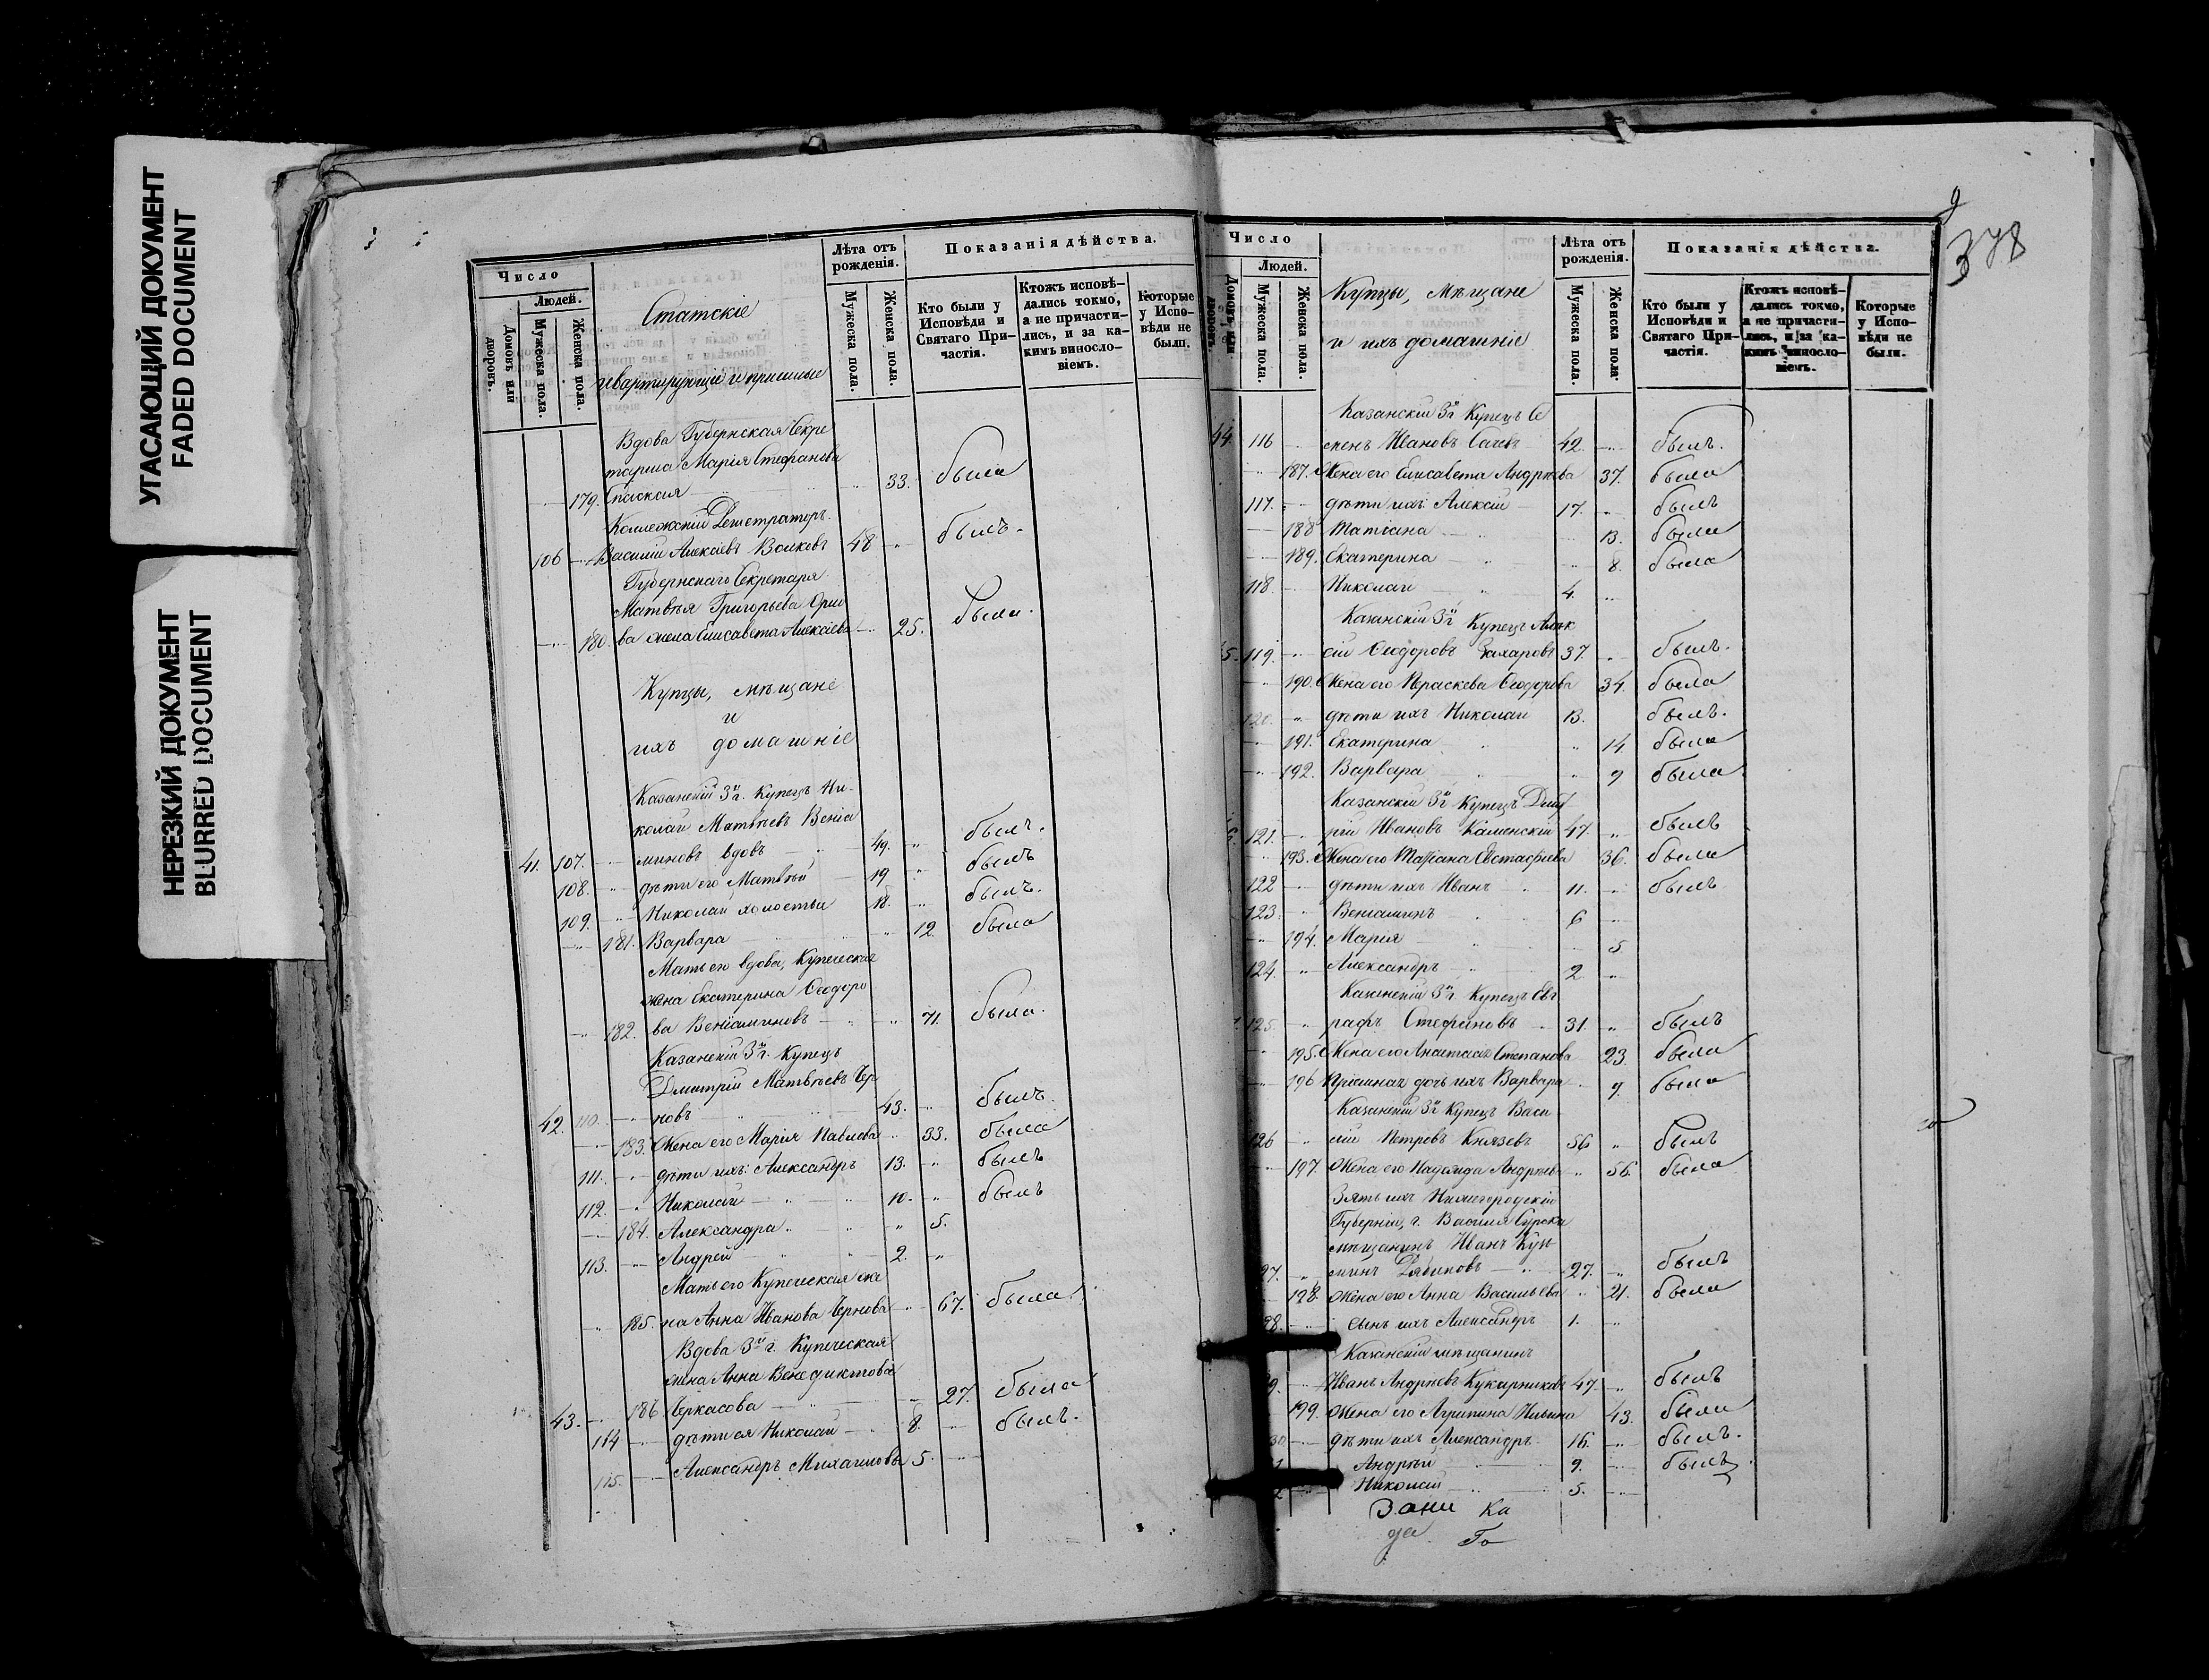 УГАСАЮЩИЙ ДОКУМЕНТ
FADED DOCUMENT
НЕРЕЗКИЙ ДОКУМЕНТ
BLURRED DOCUMENT
Число
Людей.
Домовъ или дворовъ.
Мужеска пола.
Женска пола.
Статскіе
квартирующіе и пришлые
Лѣта отъ рожденія.
Мужеска пола.
Женска пола.
Показанія дѣйства.
Кто были у Исповѣди и Святаго Причастія.
Ктожъ исповѣдались токмо, а не причастились, и за какимъ винословіемъ.
Которые у Исповѣди не были.
Вдова Губернская Секре
тарша Марія Стефанова
179. Спаская 33. была
Коллежскій Регистраторъ
106 Василій Алексѣевъ Волковъ 48 былъ.
Губернскаго Секретаря
Матвѣя Григорьева
180. ва жена Елисавета Алексѣева 25. была.
Купцы, мѣщане
и
ихъ домашніе
Казанскій 3й г. Купецъ Ни-
колай Матвѣевъ Веніа
41. 107. миновъ вдовъ 49. былъ.
108. дѣти его Матвѣй 19 былъ
109. Николай холостый 18. былъ.
181. Варвара 12 была
Мать его вдова, Купеческая
жена Екатерина Ѳеодоро
182. ва Веніаминовъ 71. была.
Казанскій 3й г. Купецъ
Дмитрій Матвѣевъ Чер
42. 110. новъ 43. былъ.
183. Жена его Марія Павлова 33. была
111. дѣти ихъ: Александръ 13. былъ
112. Николай 10. былъ
184. Александра 5.
113. Андрей 2.
Мать его Купеческая же
185. на Анна Иванова Чернова 67. была
Вдова 3й г. Купеческая
жена Анна Венедиктова
43. 186 Черкасова 27. была
114 дѣти ея Николай 8. былъ.
115. Александръ Михайловы 5.
378
Число
Людей.
Домовъ или дворовъ.
Мужеска пола.
Женска пола.
Купцы, мѣщане
и ихъ домашніе
Лѣта отъ рожденія.
Мужеска пола.
Женска пола.
Показанія дѣйства.
Кто были у Исповѣди и Святаго Причастія.
Ктожъ исповѣдались токмо, а не причастились, и за какимъ винословіемъ.
Которые у Исповѣди не были.
Казанскій 3й г Купецъ Се
44. 116 менъ Ивановъ 42. былъ.
187. Жена его Елисавета Андрѣева 37. была
117. дѣти ихъ: Алексій 17. былъ
188 Татіана 13. была
189. Екатерина 8. была
118. Николай 4.
Казанскій 3й г Купецъ Алек
119. сій Ѳеодоровъ Захаровъ 37. былъ.
190. Жена его Параскева Ѳеодорова 34. была
120. дѣти ихъ Николай 13. былъ.
191. Екатерина 14 была
192. Варвара 9 была
Казанскій 3й г Купецъ Дми
121. рій Ивановъ Каменскій 47. былъ
193. Жена его Татіана Евстафіева 36. была
122 дѣти ихъ Иванъ 11. былъ
123. Веніаминъ 6
194. Марія 5
124. Александръ 2
Казанскій 3й г. Купецъ Евг
125. рафъ Стефановъ 31. былъ
195. Жена его Анастасія Степанова 23 была
196 Пріемная дочь ихъ Варвара 9. была
Казанскій 3й г Купецъ Васи
126 лій Петровъ Князевъ 56 былъ
197. Жена его Надежда Андрѣева 56. была
Зять ихъ Нижегородскій
Губерніи, г. Василя Сурска
мѣщанинъ Иванъ Кузь
27. минъ 27. былъ
198. Жена его Анна Васильева 21. была
28. сынъ ихъ Александръ 1.
Казанскій мѣщанинъ
Иванъ Андрѣевъ Кукарниковъ 47. былъ
199. Жена его Агрипина Ильина 43. была
30 дѣти ихъ Александръ 16. былъ.
Андрѣй 9. былъ
Николай 5.